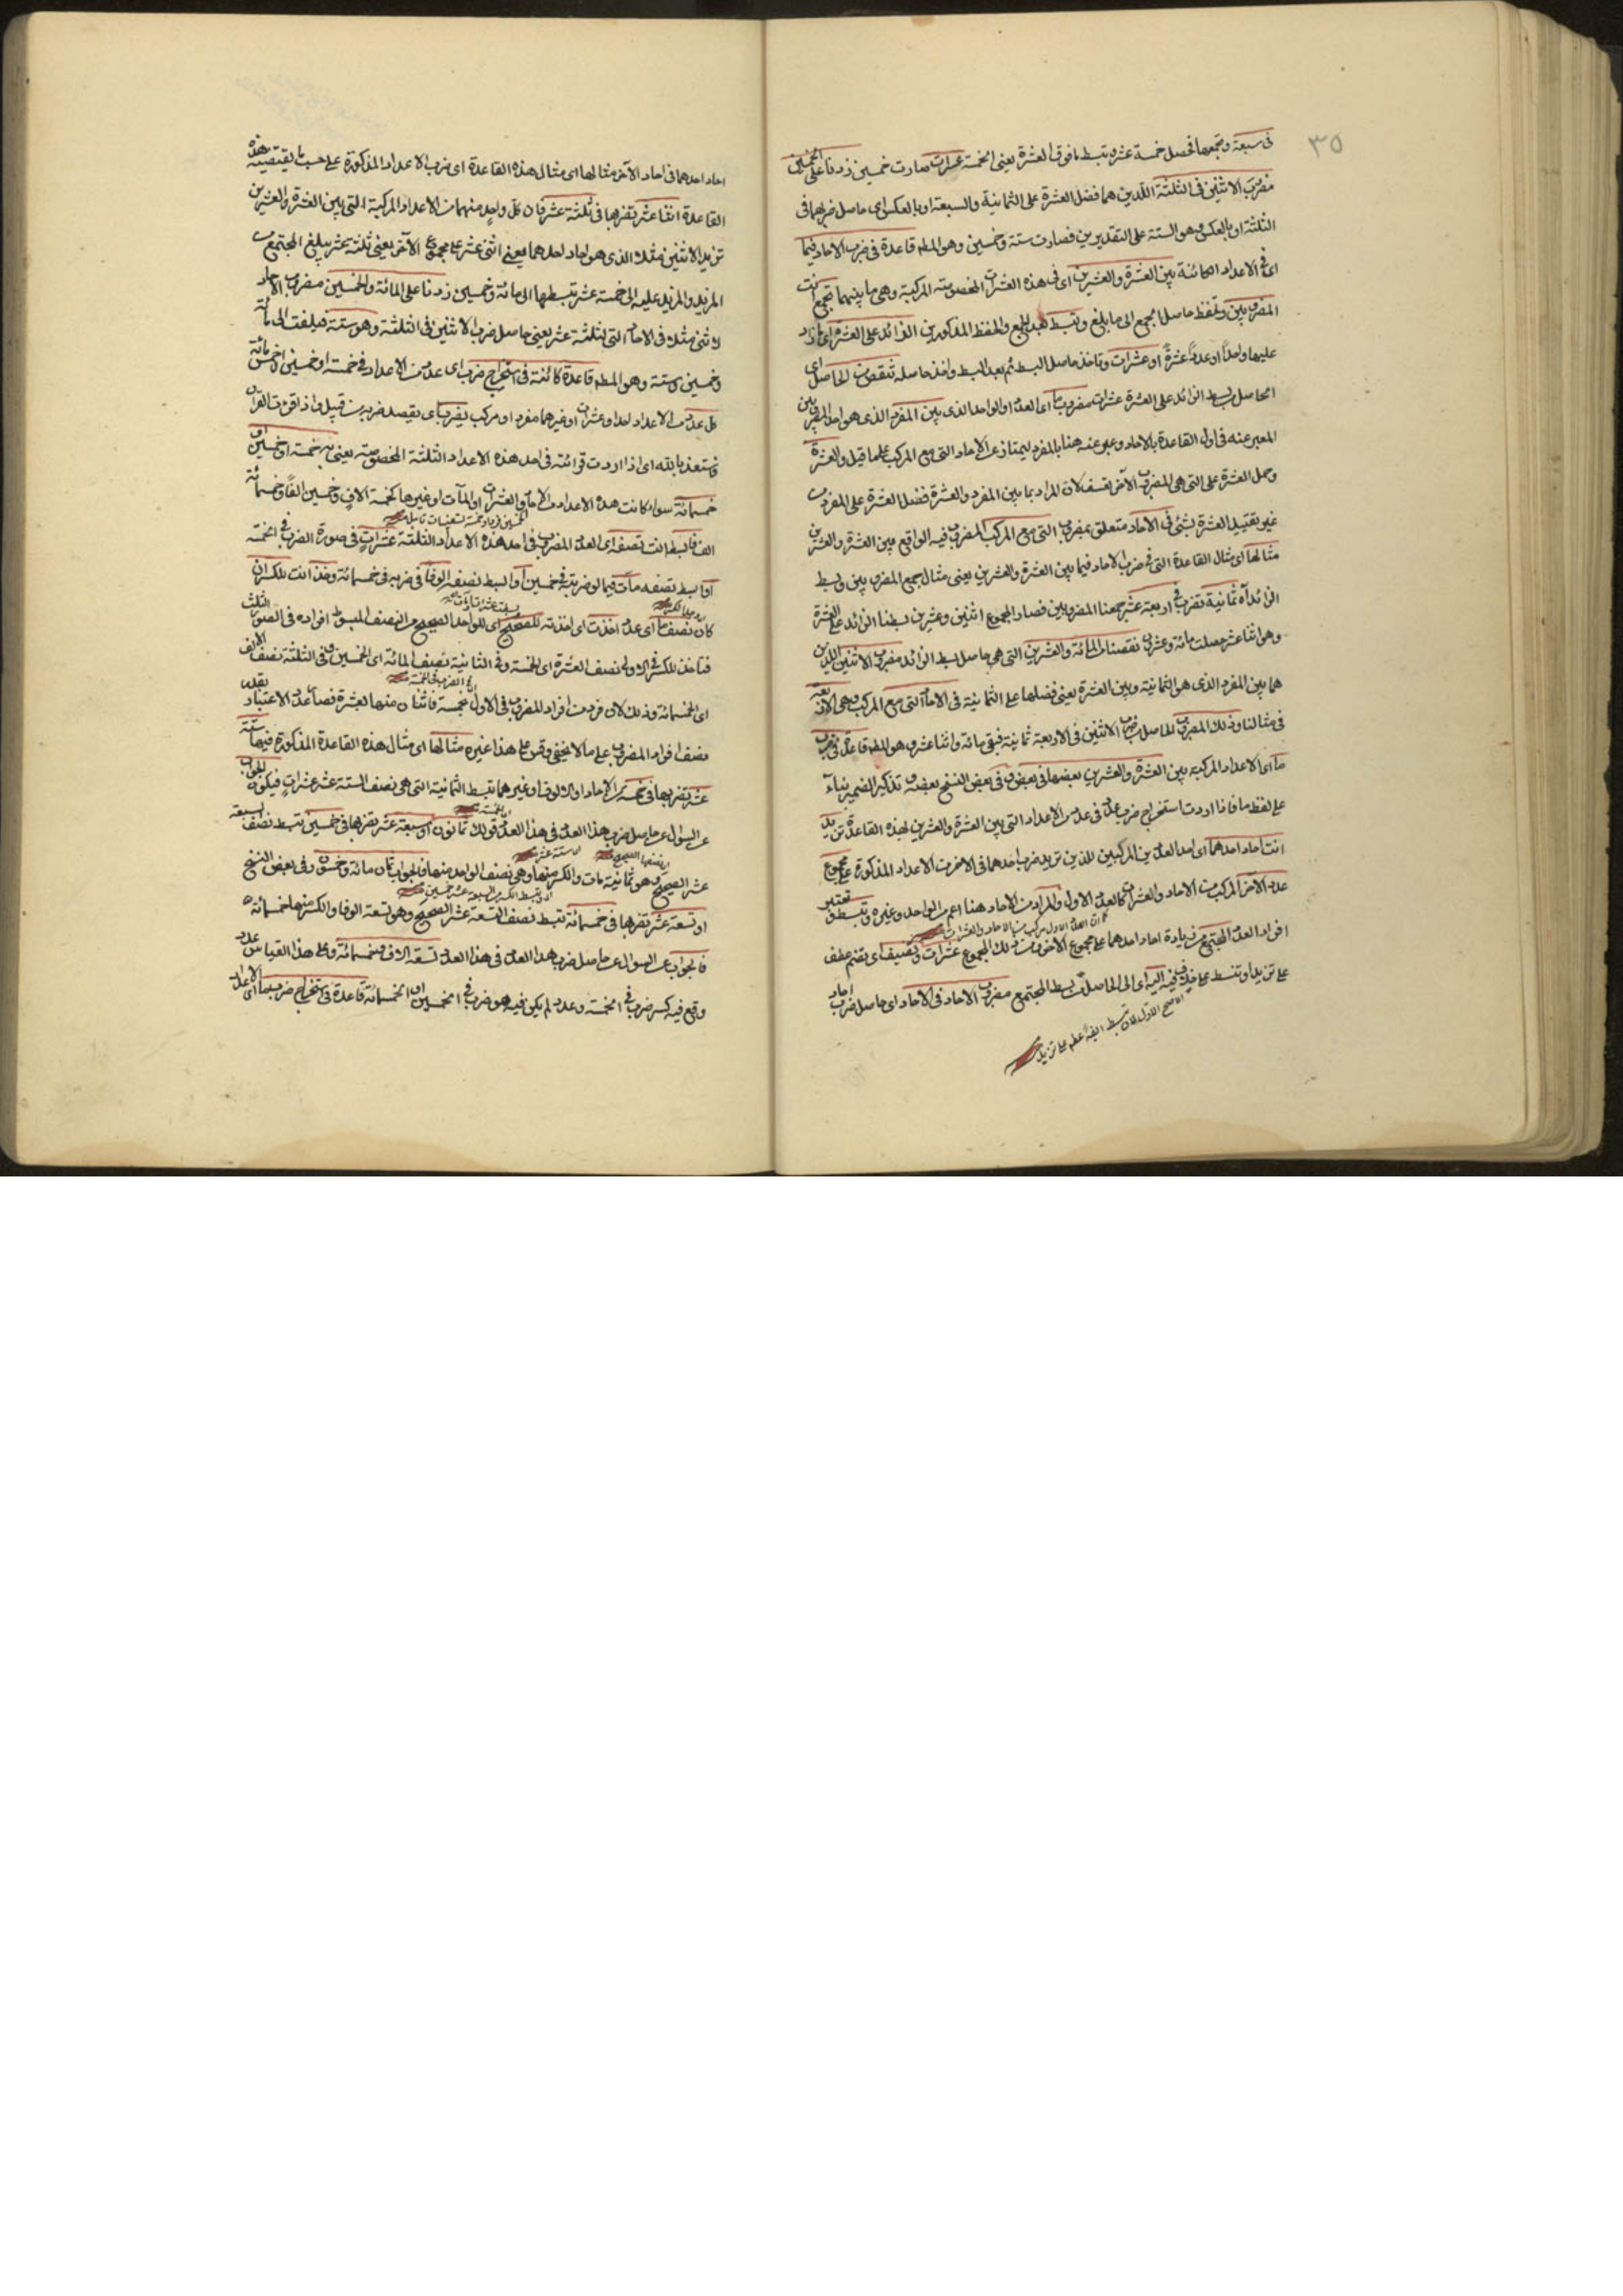 ٣٥
فى سبعة وتجمعها فحصل خمسة عشر وتبسط ما فوق العشرة يعنى الخمسة عشرات صارت خمسين زدنا على الخمسين
مضروب الاثنين فى الثلثة اللذين هما فضل العشرة على الثمانية والسبعة او بالعكس اى حاصل ضربهما فى
الثلثة او بالعكس وهو الستة على التقديرين فصارت ستة وخمسين وهو المطم قاعدة فى ضرب الاحاد فيما
اى فى الاعداد الكائنة بين العشرة والعشرين اى فى هذه العشرات المخصوصة المركبة وهى ما بينهما تجمع انت
المضروبين وتحفظ حاصل الجمع الى ما بلغ وتبسط بعد الجمع والحفظ المذكورين الزائد على العشرة اى ما زاد
عليها واحدا او عددا عشرة او عشرات وتاخذ حاصل البسط ثم بعد البسط واخذ حاصله تنقص من الحاصل اى
الحاصل ببسط الزائد على العشرة عشرات مضروب ما اى العدد او الواحد الذى بين المفرد الذى هو احد المضروبين
المعبر عنه فى اول القاعدة بالاحاد وعبر عنه هنا بالمفرد ليمتاز عن الاحاد التى مع المركب على ما قيل والعشرة
وحمل العشرة على التى هى المضروب الآخر تعسف لان المراد بما بين المفرد والعشرة فضل العشرة على المفرد من
غير تقييد العشرة بشئ فى الآحاد متعلق بمضروب التى مع المركب المضروب فيه الواقع بين العشرة والعشرين
مثالها اى مثال القاعدة التى فى ضرب الاحاد فيما بين العشرة والعشرين يعنى مثال جمع المضروبين وبسط
الزائد آه ثمانية تضرب فى اربعة عشر جمعنا المضروبين فصار المجموع اثنين وعشرين بسطنا الزائد على العشرة
وهو اثنا عشر حصلت مائة وعشرون نقصنا من المائة والعشرين التى هى حاصل بسط الزائد مضروب الاثنين اللذين
هما بين المفرد الذى هو الثمانية وبين العشرة يعنى فضلها على الثمانية فى الاحاد التى مع المركب وهى الاربعة
فى مثالنا وذلك المضروب الحاصل بضرب الاثنين فى الاربعة ثمانية فبقى مائة واثنا عشر وهو المطم قاعدة فى ضرب
ما اى الاعداد المركبة بين العشرة والعشرين بعضها فى بعض وفى بعض النسخ بعضه بتذكير الضمير بناء
على لفظ ما فاذا اردت استخراج ضرب عدد فى عدد من الاعداد التى بين العشرة والعشرين بهذه القاعدة تزيد
انت احاد احدهما اى احد العددين المركبين اللذين تريد ضرب احدهما فى الاخر من الاعداد المذكورة على مجموع
عدد الآخر المركب من الاحاد والعشرات كالعدد الاول والمراد من الاحاد هنا اعم من الواحد وغيره وتبسط تعتبر
كما ان العدد الاول مركب من الاحاد والعشرات
افراد العدد المجتمع من زيادة احاد احدهما على مجموع الاخر من ذلك المجموع عشرات وتضيف اى تضم عطف
على تزيد او تبسط فيه اليه اى الى الحاصل من بسط المجتمع مضروب الاحاد فى الاحاد اى حاصل ضرب احاد
الاصح الاول لان تبسط ايضا عطف على تزيد
احاد احدهما فى احاد الآخر مثالها اى مثال هذه القاعدة اى ضرب الاعداد المذكورة على حسب ما يقتضيه هذه
القاعدة اثنا عشر تضربها فى ثلثة عشر فان كل واحد منهما من الاعداد المركبة التى بين العشرة والعشرين
تزيد الاثنين مثلا الذى هو احاد احدهما يعنى اثنى عشر على مجموع الآخر يعنى ثلثة عشر يبلغ المجتمع من
المزيد والمزيد عليه الى خمسة عشر تبسطها الى مائة وخمسين زدنا على المائة والخمسين مضروب الاحاد
الاثنى مثلا فى الاحاد التى لثلثة عشر يعنى حاصل ضرب الاثنين فى الثلثة وهو ستة فبلغت الى مائة
وخمسين وستة وهو المطم قاعدة كائنة فى استخراج ضرب اى عدد من الاعداد فى خمسة او خمسين او خمسمائة
كل عدد من الاعداد احاد وعشرات او غيرهما مفرد او مركب يضرب اى يقصد ضربه من قبيل واذا قرئت القران
فاستعذ بالله اى اذا اردت قرائته فى احد هذه الاعداد الثلثة المخصوصة يعنى به خمسة او خمسين او
خمسمائة سواء كانت هذه الاعداد من الاحاد والعشرات او المآت او غيرها كخمسة الاف وخمسين الفا وخمسمائة
الف فابسط انت نصفه اى العدد المضروب فى احد هذه الاعداد الثلثة عشرات فى صورة الضرب فى الخمسة
او ابسط نصفه مآت فيما لو ضربته فى خمسين او ابسط نصفه الوفا فى ضربه فى خمسمائة وخذ انت للكسر ان
كان نصف ما اى عدد اخذت اى اخذته للصحيح اى للواحد الصحيح من النصف المبسوط افراده فى الصور الثلث
فتاخذ للكسر فى الاولى نصف العشرة اى الخمسة وفى الثانية نصف المائة اى الخمسين وفى الثالثة نصف الالف
اى الخمسمائة وذلك لان كل فرد من افراد المضروب فى الاول خمسة فاثنان منها لعشرة فصار عدد الاعتبار بقدر
نصف افراد المضروب على ما لا يخفى وقس على هذا غيره مثالها اى مثال هذه القاعدة المذكورة فيها ستة
عشر تضربها فى خمسة من الاحاد او الالوف او غيرهما تبسط الثمانية التى هى نصف الستة عشر عشرات فيكون الجواب
عن السؤال عن حاصل ضرب هذا العدد فى هذا العدد قولك ثمانون او سبعة عشر تضربها فى خمسين تبسط نصف السبعة
عشر الصحيح وهو ثمانية مآت والكسر منها وهى نصف الواحد منها فالجواب ثمان مائة وخمسون وفى بعض النسخ
او تسعة عشر تضربها فى خمسمائة تبسط نصف التسعة عشر الصحيح وهو تسعة الوفا والكسر منها خمسمائة
فالجواب عن السؤال عن حاصل ضرب هذا العدد فى هذا العدد تسعة الاف وخمسمائة وعلى هذا القياس عدد
وقع فيه كسر ضرب فى الخمسة وعدد لم يكن فيه هو ضرب فى الخمسين او الخمسمائة قاعدة فى استخراج ضرب ما اى الاعداد